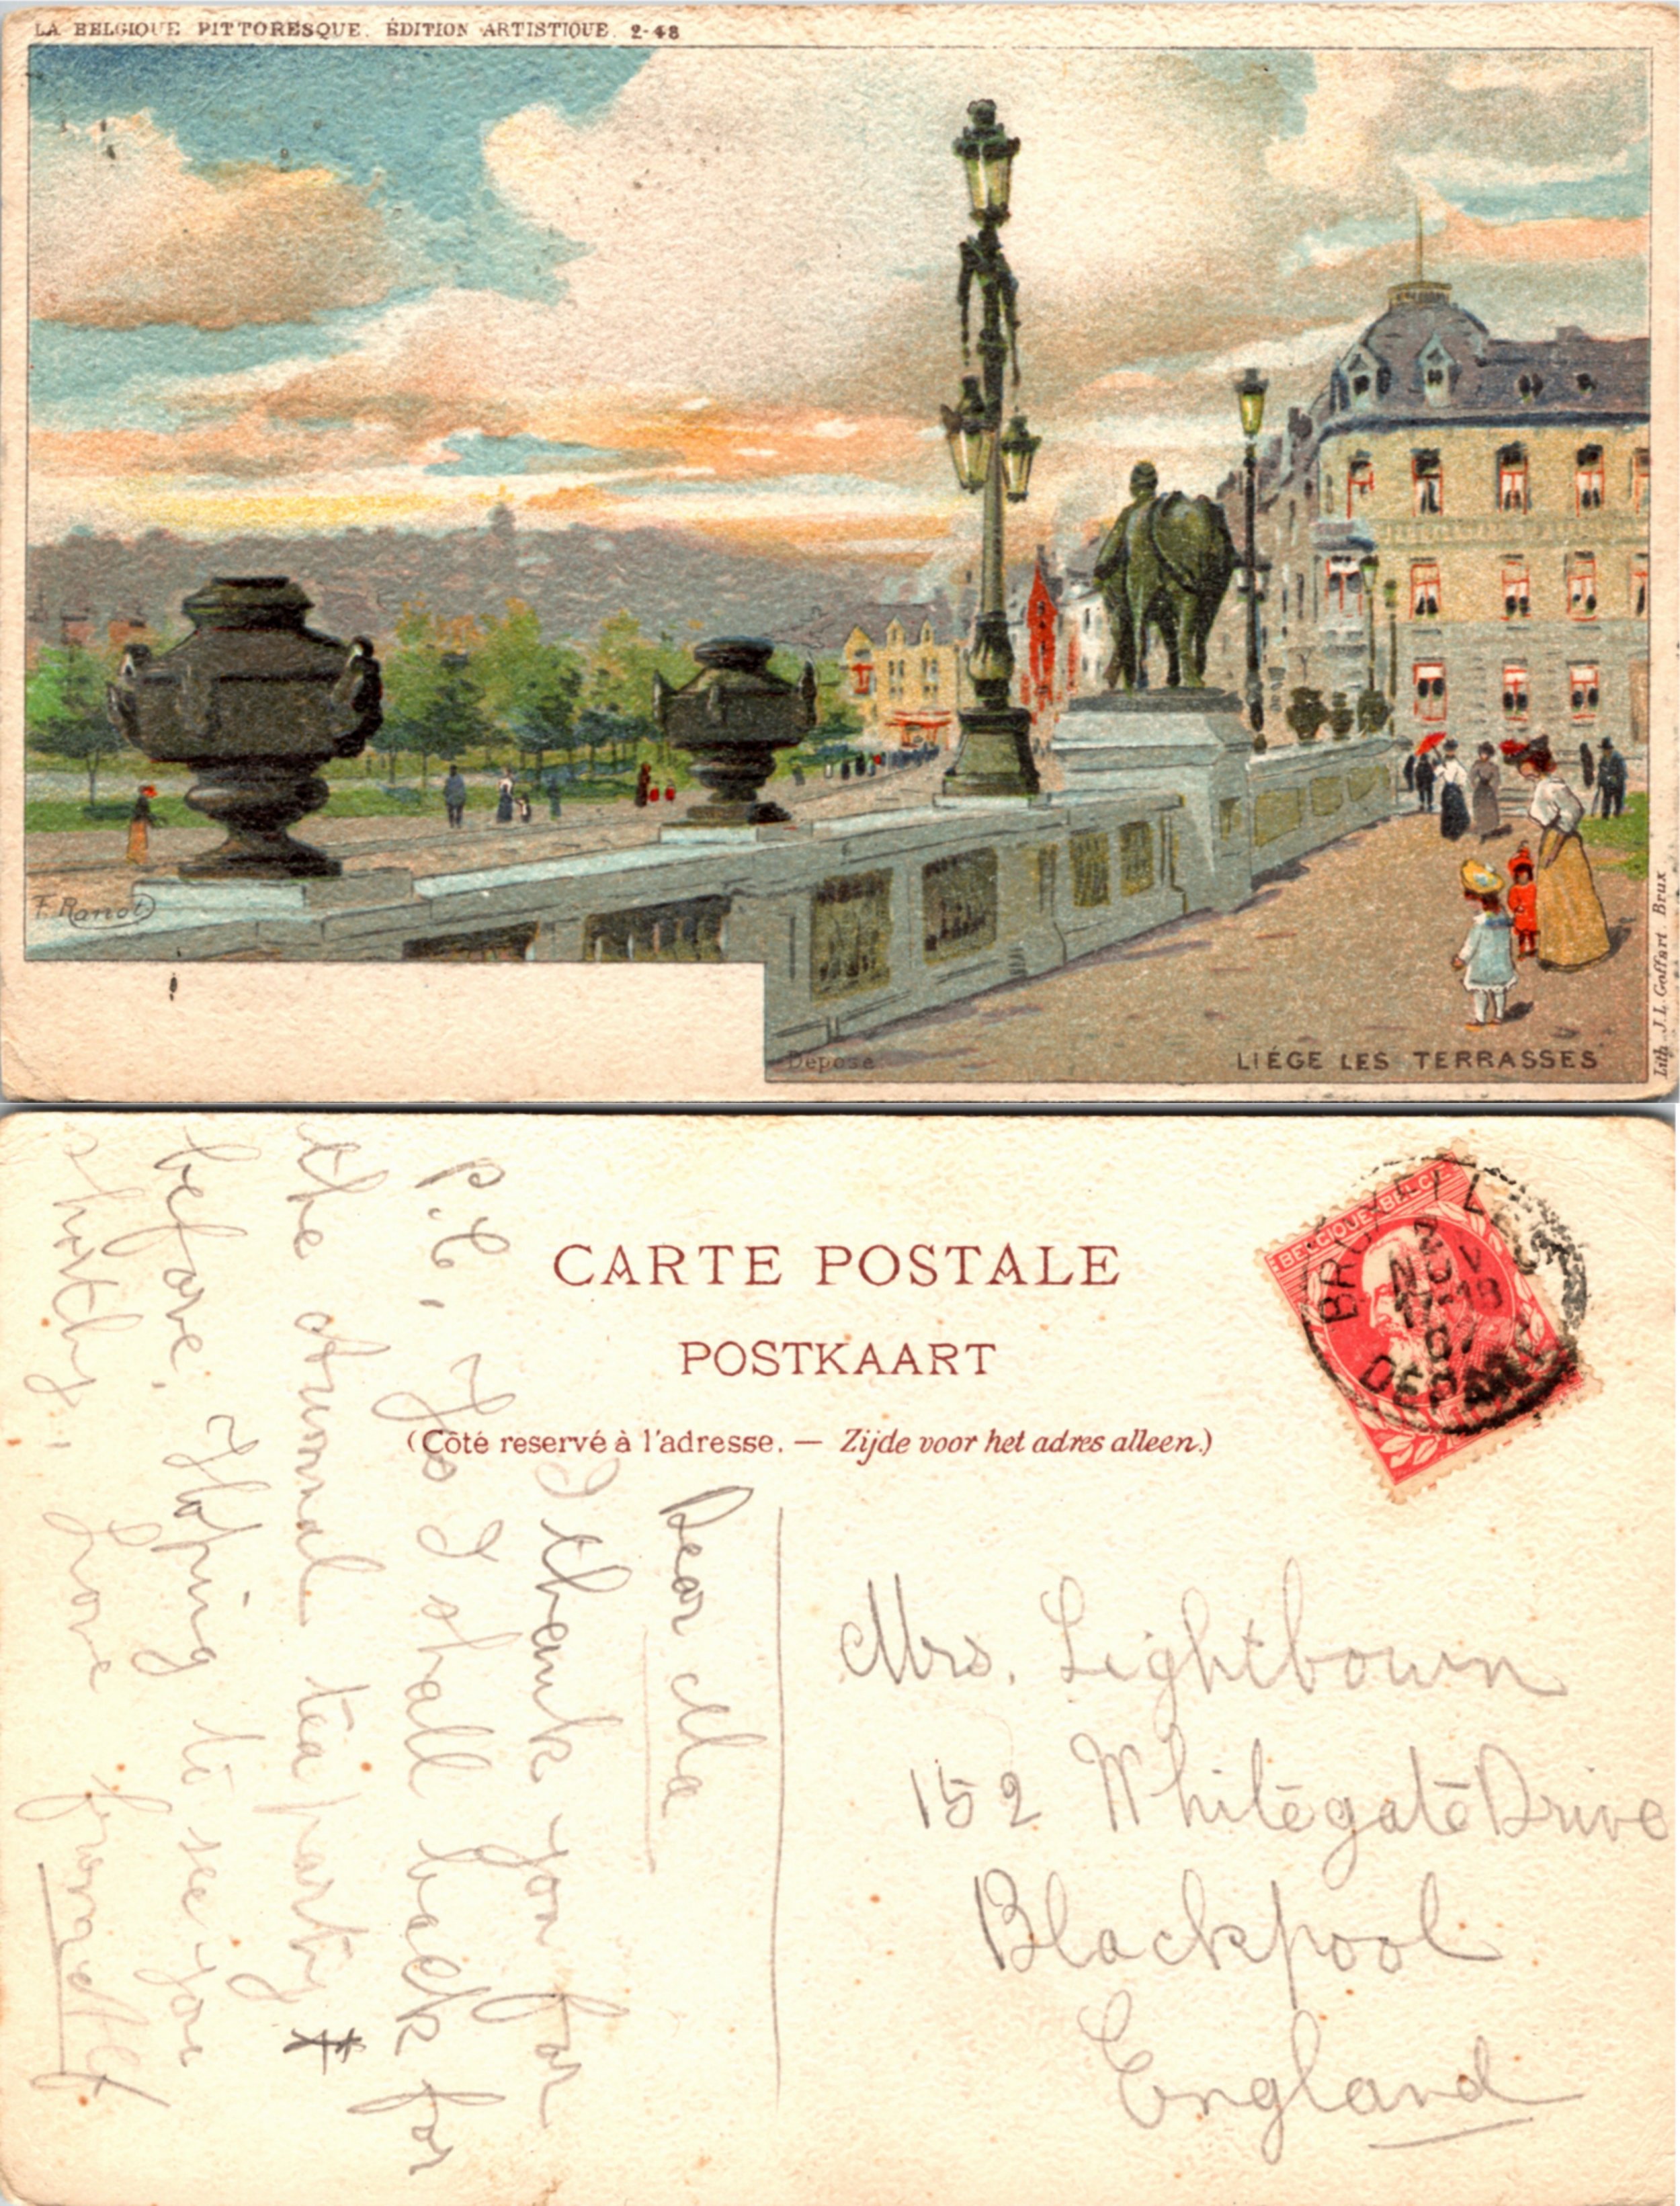 LA BELGIQUE PITTORESQUE. ÉDITION ARTISTIQUE. 2-48
F. Ranot
Déposé
LIÉGE LES TERRASSES
Lith. J.L. Goffart Brux
CARTE POSTALE
POSTKAART
(Côté reservé à l'adresse. — Zijde voor het adres alleen.)
BELGIQUE BELGIË
BRUXELLES
NOV
17-18
07
DEPART
Dear Ma
I thank you for
P.C. Yes I shall back for
the annual tea party
before. Hoping to see you
shortly. Love
Mrs. Lightbown
152 Whitegate Drive
Blackpool
England